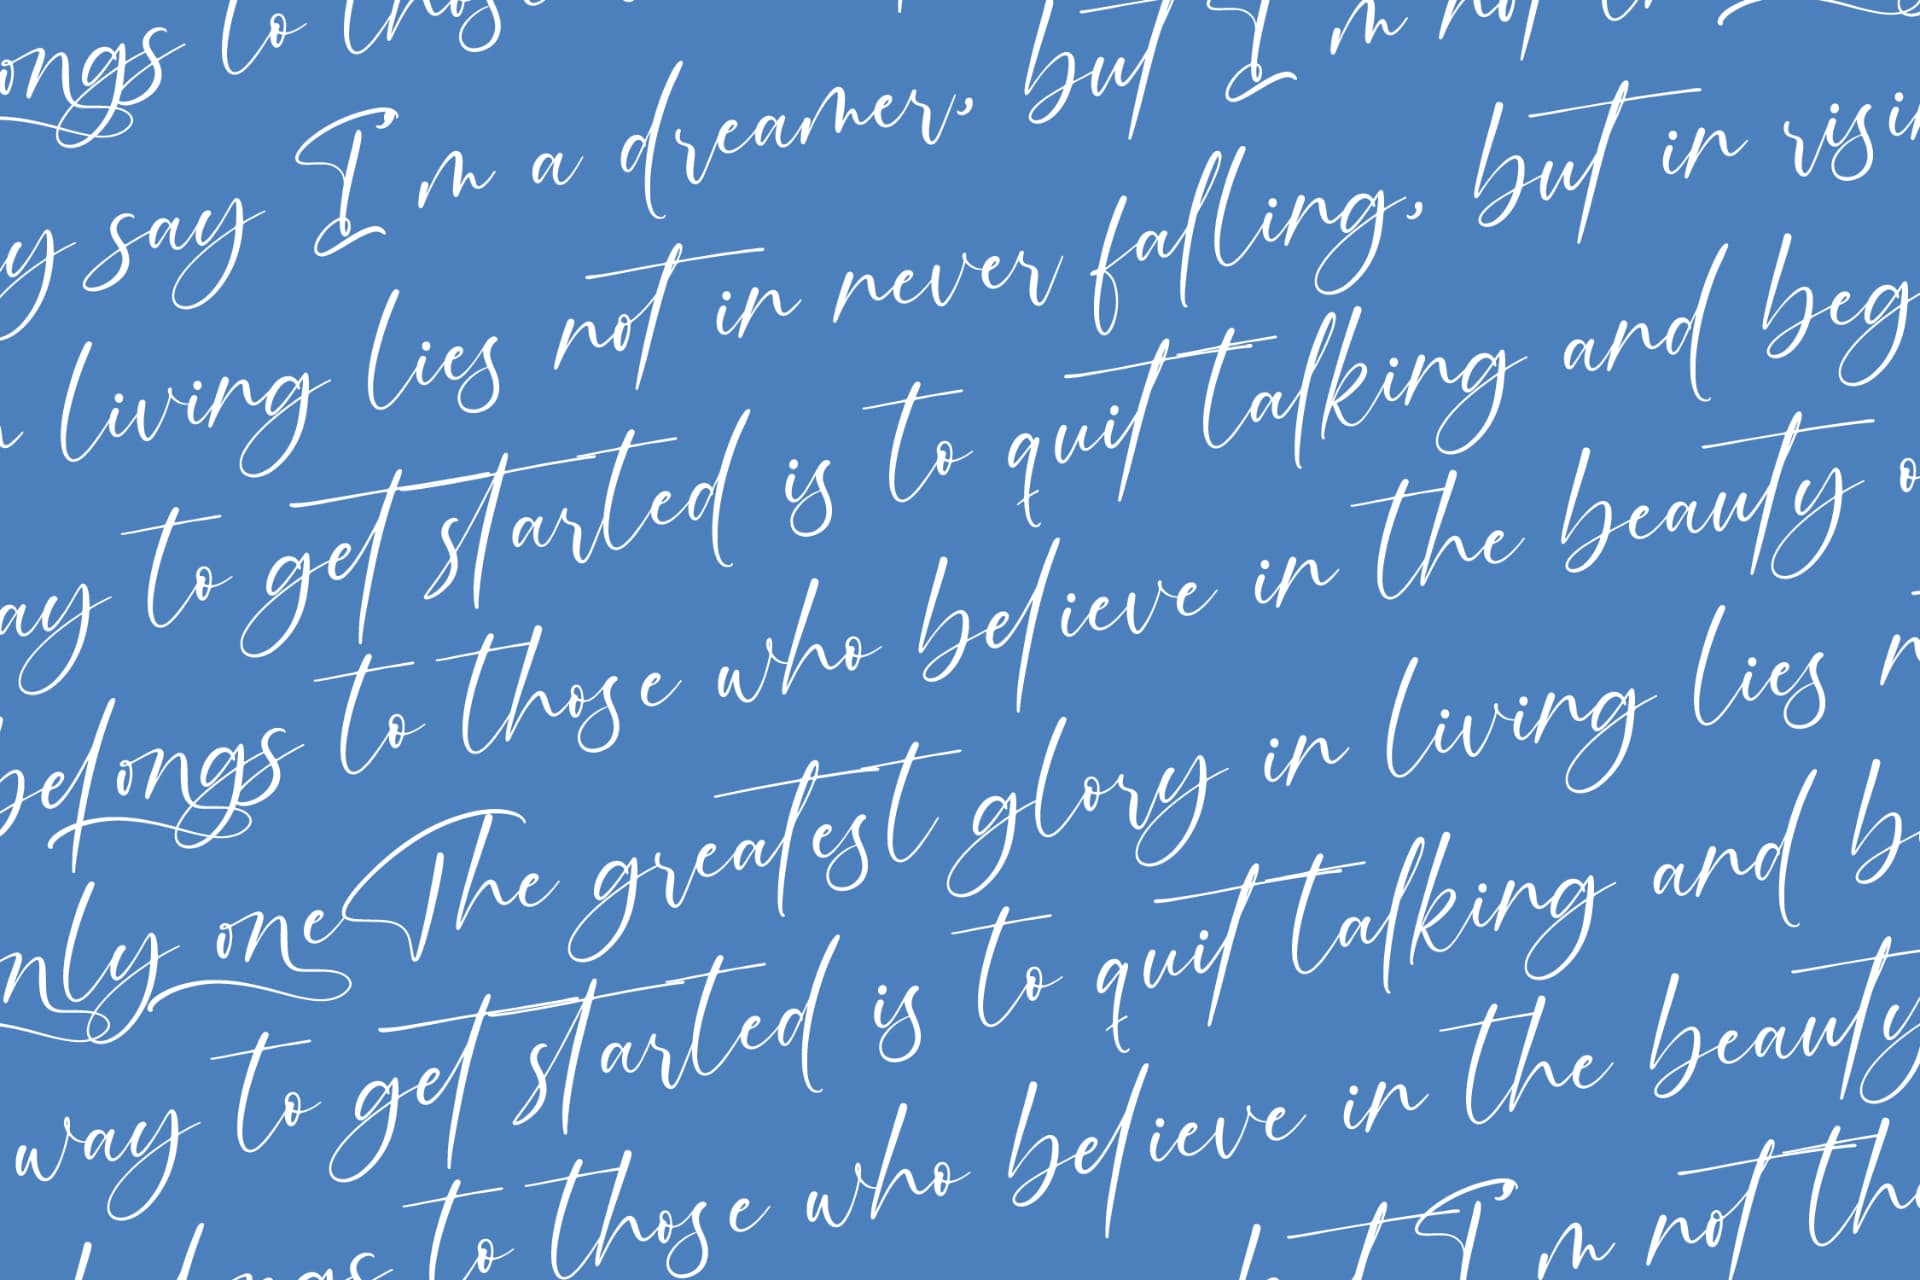 ongs to those
say I'm a dreamer, but I'm not
living lies not in never falling, but in risin
ay to get started is to quit talking and beg
belongs to those who believe in the beauty o
nly one The greatest glory in living lies n
way to get started is to quit talking and be
belongs to those who believe in the beauty
but I'm not the